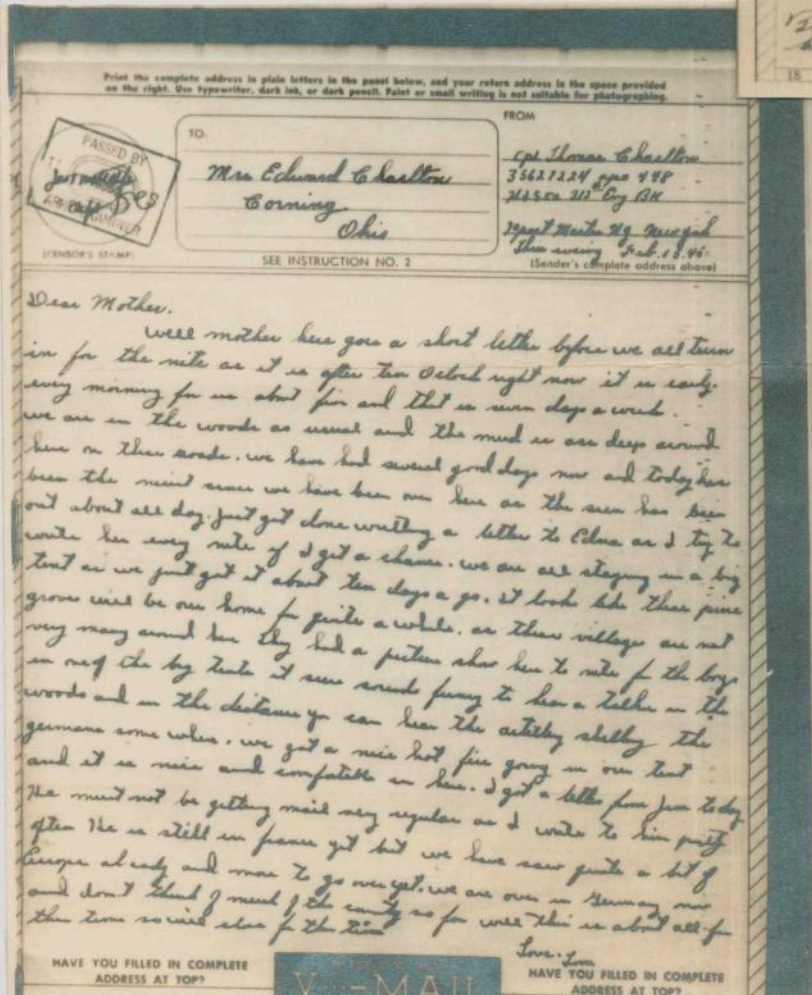 Print the complete address in plain letters in the panel below, and your return address in the space provided
on the right. Use typewriter, dark ink, or dark pencil. Faint or small writing is not suitable for photographing.
18
FROM
PASSED BY
ARMY EXAMINER
(CENSOR'S STAMP)
TO:
Mrs Edward Charlton
Corning
Ohio
SEE INSTRUCTION NO. 2
cpl Thomas Charlton
35627224 apo 448
Eng BN
New york
Thus evening Feb. 45
(Sender's complete address above)
Dear Mother.
well mother here goes a short letter before we all turn
in for the nite as it is after ten Oclock right now it is early
every morning for us about five and that is seven days a week.
we are in the woods as usual and the mud is deep around
here on these roads. we have had several good days now and today has
been the nicest since we have been over here as the sun has been
out about all day. Just got done writting a letter to Edna as I try to
write her every nite if I get a chance. we are all staying in a big
tent as we just got it about ten days a go. it looks like these pine
groves will be our home for quite a while. as these villages are not
very many around here they had a picture show here to nite for the boys
in one of the big tents it sure sounds funny to hear a talkie in the
woods and in the distance you can hear the artillery shelling the
germans some where. we got a nice hot fire going in our tent
and it is nice and comfatible in here. I got a letter from Jim today
He must not be getting mail very regular as I write to him pretty
often He is still in france yet but we have saw quite a bit of
Europe already and more to go over yet. we are over in Germany now
and don't think of much of the country so far well this is about all for
this time so will close for this time
Love. Tom
HAVE YOU FILLED IN COMPLETE
ADDRESS AT TOP?
V···-MAIL
HAVE YOU FILLED IN COMPLETE
ADDRESS AT TOP?